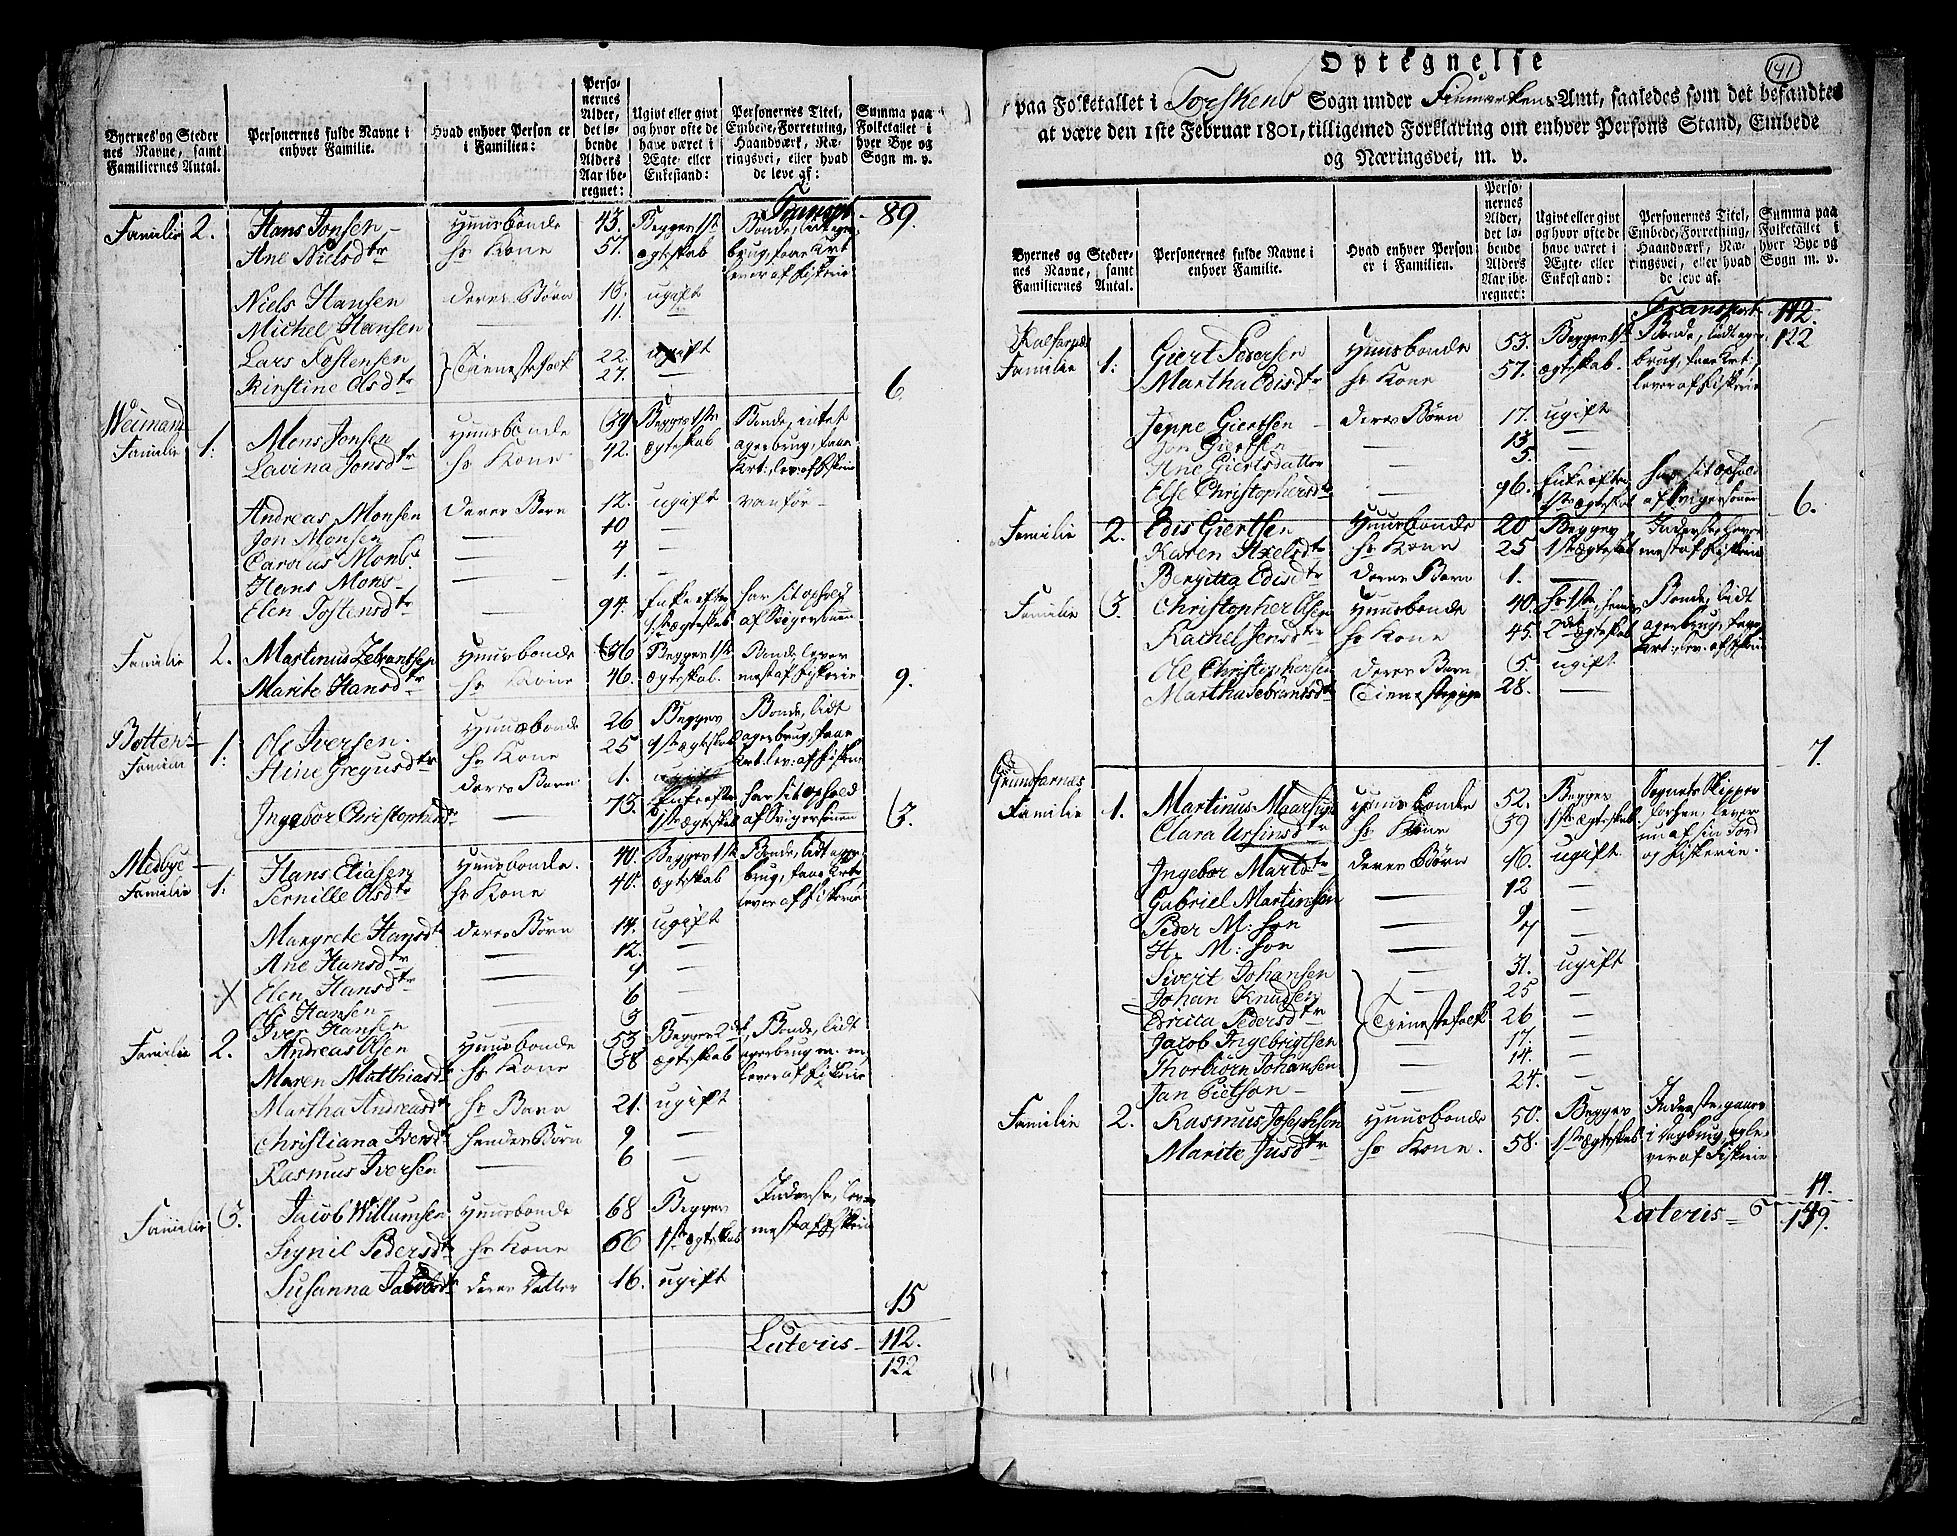 Byernes og Steder nes Navne, samt Familiernes Antal.
Personernes fulde Navne i enhver Familie.
Hvad enhver Person er i Familien:
Personernes Alder, det løbende Alders Aar iberegnet:
Ugivt eller givt og hvor ofte de have været i Ægte- eller Enkestand:
Personernes Titel, Embede, Forretning, Haandværk, Næringsvei, eller hvad de leve af:
Summa paa Folketallet i hver Bye og Sogn m. v.
Transpt. 89.
Familie 2. Hans Jonsen Huusbonde 43. Begge 1ste Bonde, lidt ager
Ane Nielsdtr hs Kone 57. ægteskab brug, fane Art
lever af fiskerie
Niels Hansen deres Børn ugift
Michel Hansen — 11. —
Lars Tostensen Tienestefolk 22. ugift
Kirstine Olsdtr 27. — 6.
Familie 1. Mons Jonsen Huusbonde 39 Begge 1ste Bonde, intet
Lavina Jonsdtr hs Kone 42. ægteskab agerbrug, faar
lev. af fiskerie
Andreas Monsen deres Børn 12. ugift vanfør —
Jon Monsen — 10 —
Monss. — 4 —
Hans Mons — — 1. —
Elen Tostensdtr — 94. Enke efter har sit ophold
1ste ægteskab af Svigersønnen
Familie 2. Martinus Huusbonde 36 Begge 1ste Bonde lever
Marite Hansdtr hs Kone 46. ægteskab. mest af fiskerie 9.
Familie 1. Ole Iversen. Huusbonde 26 Begges Bonde, lidt
Stine Gregusdtr hs Kone 25 1ste ægteskab agerbrug, faar
deres Barn 1. ugift lev: af fiskerie
Ingebor Christophersdtr — 73. Enke efter har sit ophold
1ste ægteskab af Svigersønnen
Medbye
Familie 1. Hans Eliasen Huusbonde. 40. Begge 1ste Bonde, lidt ager
Pernille Olsdtr hs Kone 40. ægteskab brug,
lever af fiskerie
Margrete Hansdtr deres Børn 14. ugift
Ane Hansdtr — 12. —
Elen Hansdtr — 9 —
Ole Hansen — — 6 —
Iver Hansen 3 —
Familie 2. Andreas Olsen Huusbonde 53 Begge 2det Bonde, lidt
Maren Matthiasdtr hs Kone 38 ægteskab agerbrug m. m.
lever af fiskerie
Martha Andreasdtr hs Barn 21. ugift
Christiana Iversdtr hendes Børn 9 —
Rasmus Iversen — 6 —
Familie 3. Jacob Willumsen Huusbonde 68 Begges Inderste, lever
Synil Pedersdtr hs Kone 66 1ste ægteskab mest af fiskerie
Susanna Jacobsdtr deres Datter 16. ugift
15
Lateris — 112.
122
141
Optegnelse
paa Folketallet i Torskens Sogn under Finmarkens Amt, saaledes som det befandtes
at være den 1ste Februar 1801, tilligemed Forklaring om enhver Persons Stand, Embede
og Næringsvei, m. v.
Byernes og Stedernes Navne, samt Familiernes Antal.
Personernes fulde Navne i enhver Familie.
Hvad enhver Person er i Familien.
Personernes Alder, det løbende Alders Aar iberegnet:
Ugivt eller givt og hvor ofte de have været i Ægte- eller Enkestand:
Personernes Titel, Embede, Forretning, Haandværk, Næringsvei, eller hvad de leve af.
Summa paa Folketallet i hver Bye og Sogn m. v.
Transport 112.
122
Familie 1. Giert Pedersen Huusbonde 53. Begge 1ste Bonde, lidt ager
Martha Edisdtr hs Kone 57. ægteskab. brug,
lever af fiskerie
Jeppe Giertsen — deres Børn 17. ugift
Jon Giertsen — 13 —
Ane Giertsdatter — 5. —
Else Christophersdtr — 96. Enke efter har sit ophold
1ste ægteskab af Svigersønnen 6.
Familie 2. Edis Giertsen Huusbonde 20 Begges Inderste, lever
Karen Axelsdtr hs Kone 25 1ste ægteskab mest af fiskerie
Bergitta Edisdtr deres Barn 1. —
Familie 3. Christopher Olsen Huusbonde 40. hs 1ste, hendes Bonde, lidt
Rachel Jensdtr hs Kone 45. 2det ægteskab agerbrug, faar
lev. af fiskerie
Ole Christophersen deres Barn 5. ugift
Martha Sebrantsdtr Tienestepige 28. —
7.
Grundfarnæs
Familie 1. Martinus Huusbonde 52. Begges Sognets Skipper
Clara Ursinsdtr hs Kone 59 1ste ægteskab. lever
nu af sin Jord
og fiskerie.
Ingebor Martsdtr deres Børn 16. ugift
Gabriel Martinsen — 12 —
Peder M: søn — 9 —
H. M: søn — 7 —
Sivert Johansen 31. ugift
Johan Knudsen 25 —
Britta Pedersdtr Tienestefolk 26 —
Jacob Ingebrigtsen — 17. —
Thorbiørn Johansen — 14. —
Jan Pietson — 24. —
Familie 2. Rasmus Josephsen Huusbonde 50. Begges Inderste, gaaer
Marite Jusdtr hs Kone. 58. 1ste ægteskab i og le-
ver af fiskerie
14.
Lateris — 149.